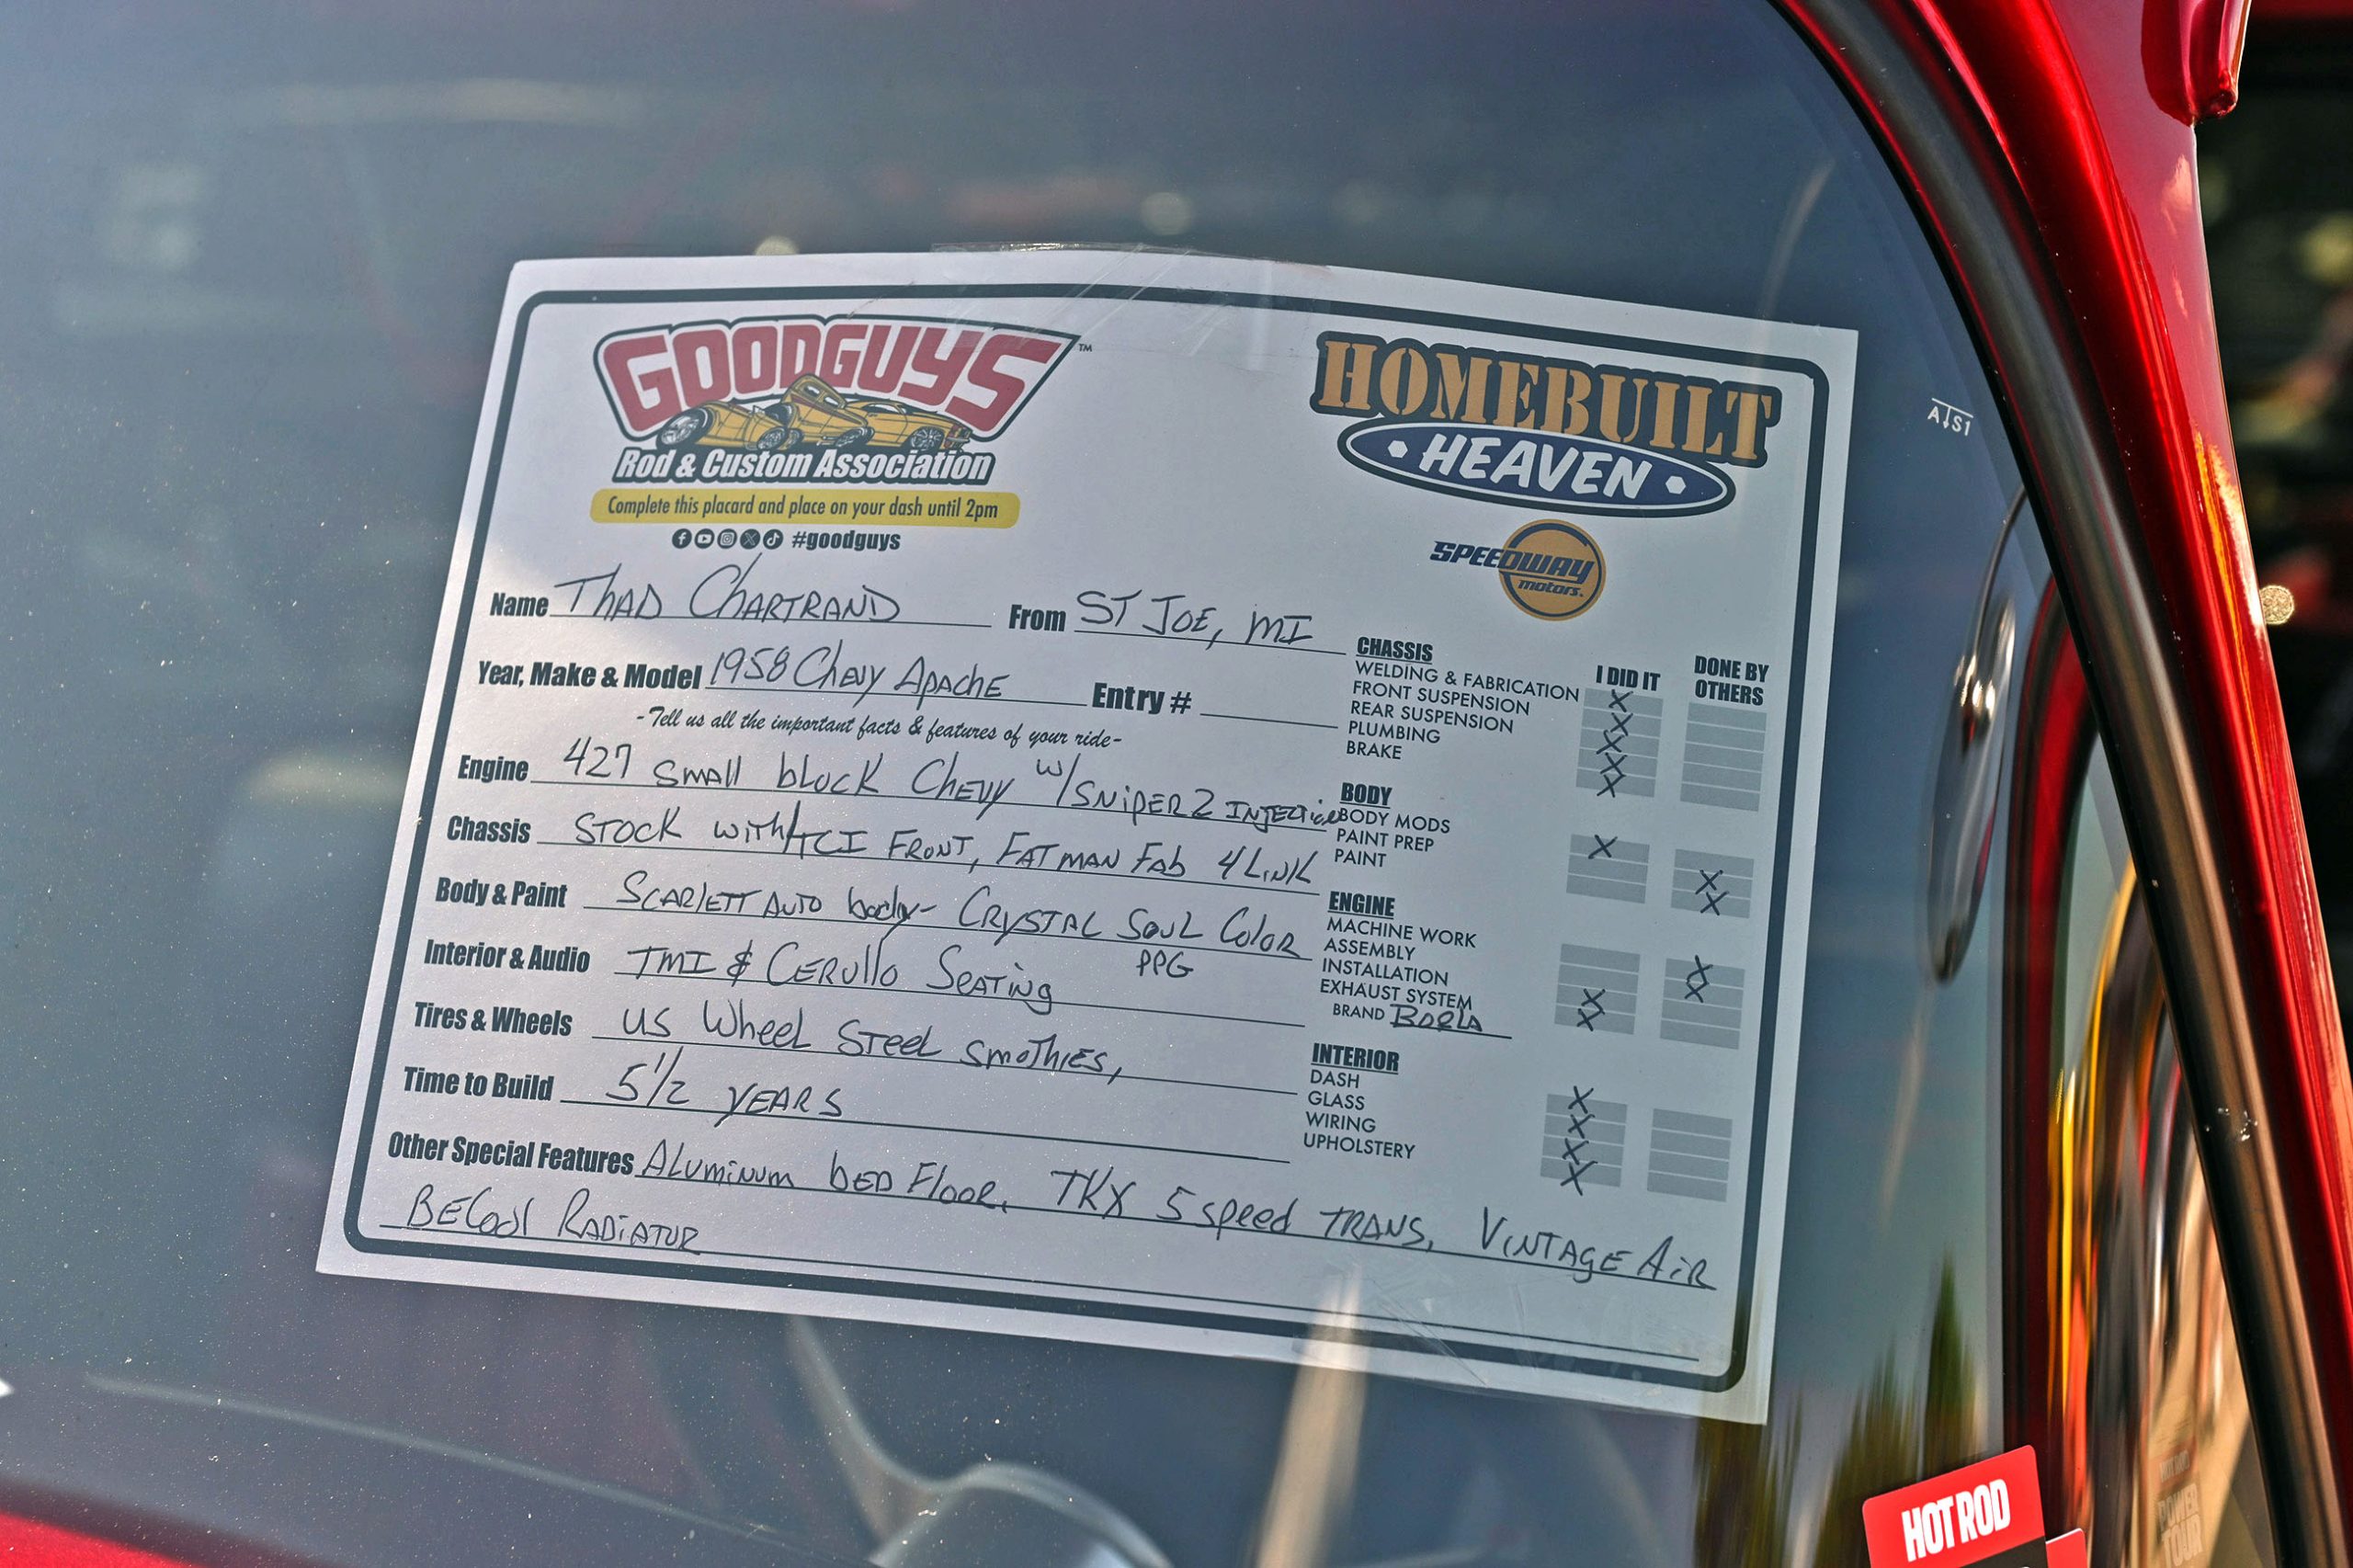 GOODGUYS™
Rod & Custom Association
Complete this placard and place on your dash until 2pm
#goodguys
HOMEBUILT
HEAVEN
SPEEDWAY
motors.
Name THAD CHARTRAND From ST JOE, MI
Year, Make & Model 1958 Chevy APACHE Entry #
-Tell us all the important facts & features of your ride-
Engine 427 small block CHEVY w/ SNIPER 2 INJECTION
Chassis STOCK with TCI FRONT, FATMAN Fab 4 LINK
Body & Paint SCARLETT AUTO body- CRYSTAL SOUL COLOR
PPG
Interior & Audio TMI & CERullo SEATING
Tires & Wheels US Wheel STEEL SMOTHIES,
Time to Build 5 1/2 YEARS
Other Special Features ALUMINUM bED FLOOR, TKX 5 speed TRANS, VINTAGE AIR
BECool RADIATOR
I DID IT
DONE BY
OTHERS
CHASSIS
WELDING & FABRICATION X
FRONT SUSPENSION X
REAR SUSPENSION X
PLUMBING X
BRAKE X
BODY
BODY MODS X
PAINT PREP X
PAINT X
ENGINE
MACHINE WORK X
ASSEMBLY X
INSTALLATION X
EXHAUST SYSTEM X
BRAND BORLA
INTERIOR
DASH X
GLASS X
WIRING X
UPHOLSTERY X
AS1
HOT ROD